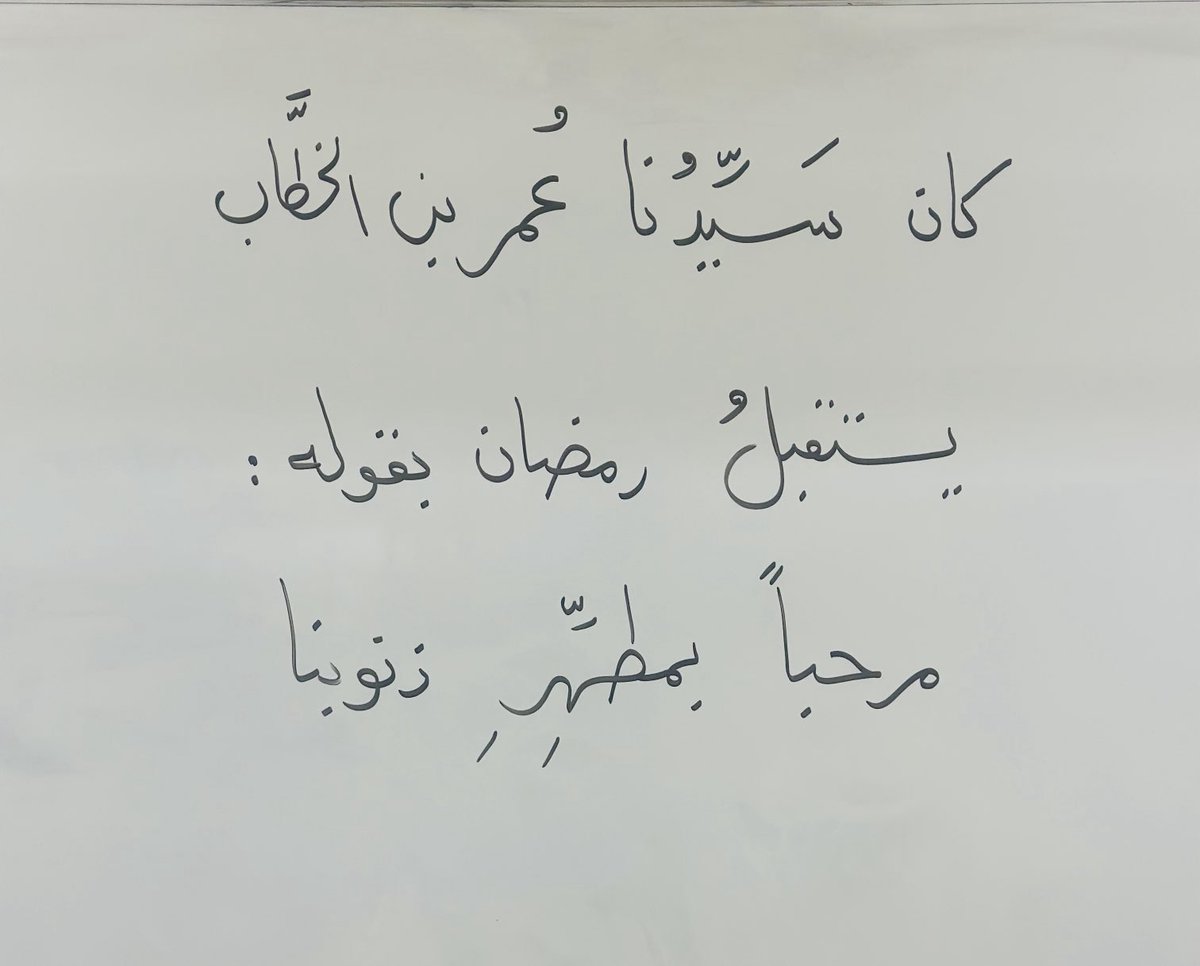 كان سَيِّدُنا عُمر بن الخطَّاب
يستقبلُ رمضان بقوله :
مرحباً بمطهِّرِ زنوبنا